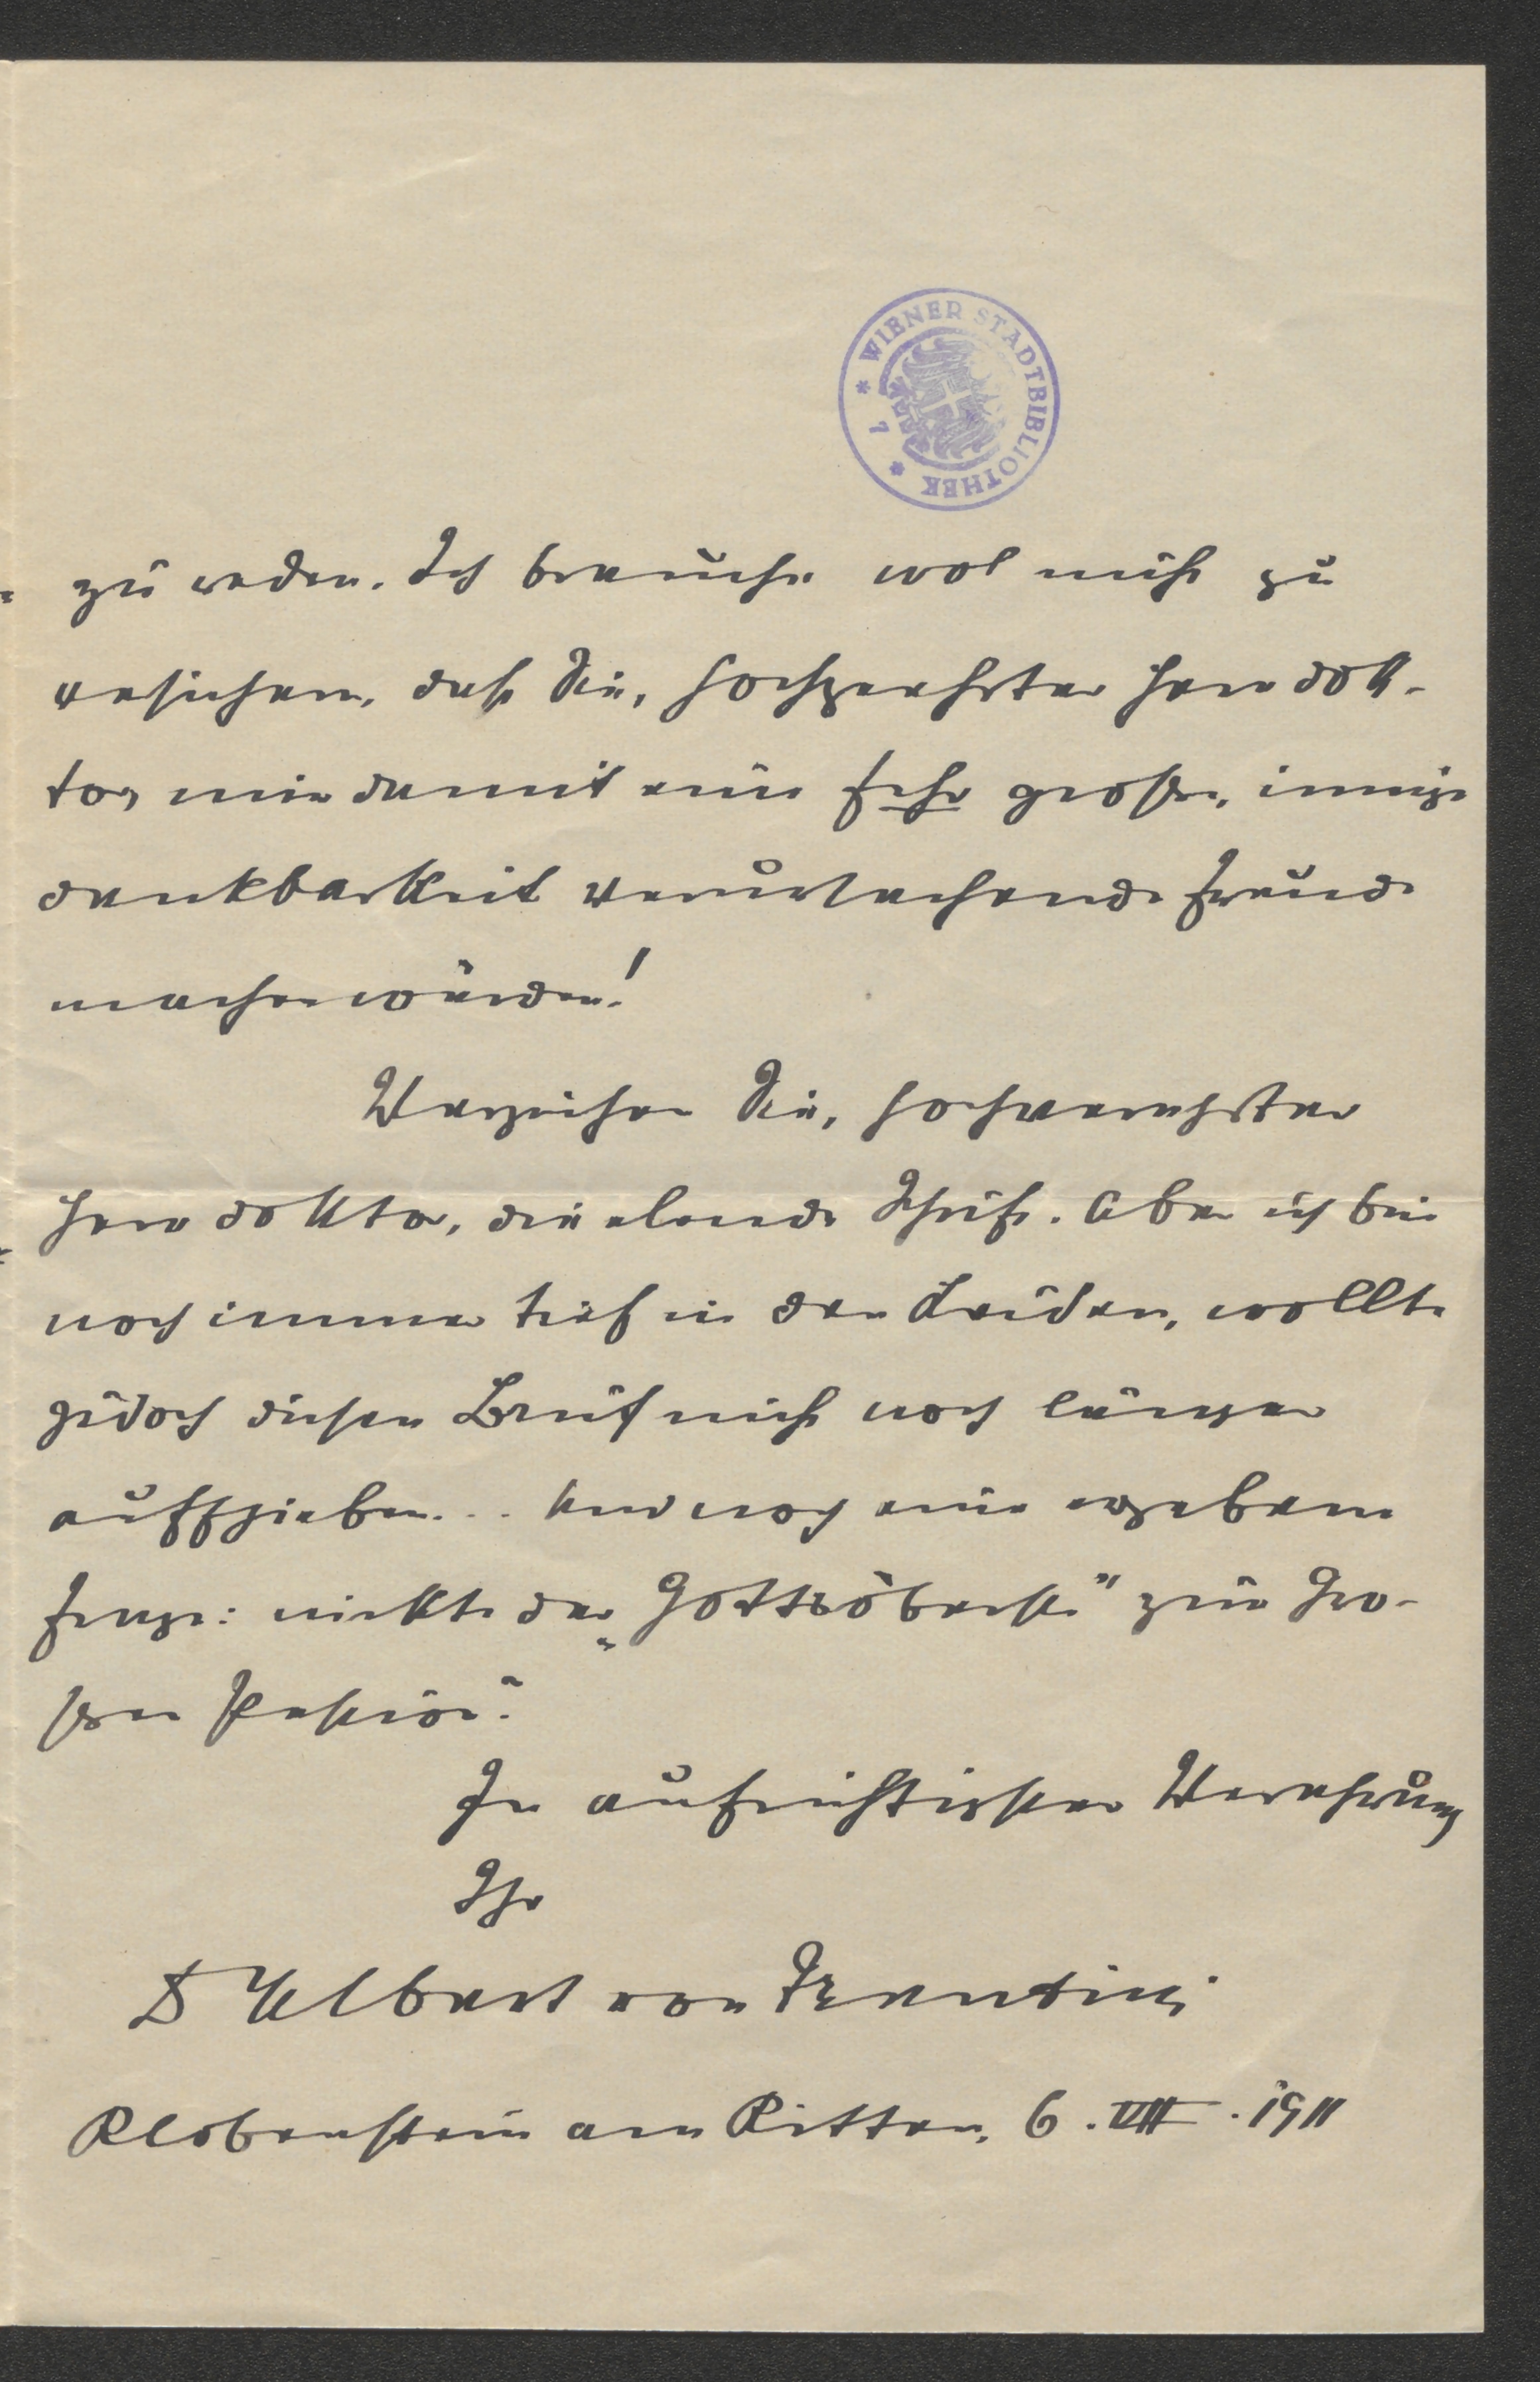 WIENER STADTBIBLIOTHEK
zu reden. Ich brauche wol nicht zu
versichern, dass Sie, hochgeehrter Herr Dok-
tor, mir damit eine sehr grosse, innige
Dankbarkeit verursachende Freude
machen würden!
Verzeihen Sie, hochverehrter
Herr Doktor, die elende Schrift. Aber ich bin
noch immer tief in den Leiden, wollte
jedoch diesen Brief nicht noch länger
aufschieben... Und noch eine ergebene
Frage: nickte der „Gott “ zur Gro-
ssen
In aufrichtigster Verehrung
Ihr
Dr Albert von Trentini
Klobenstein am Ritten, 6. VII. 1911